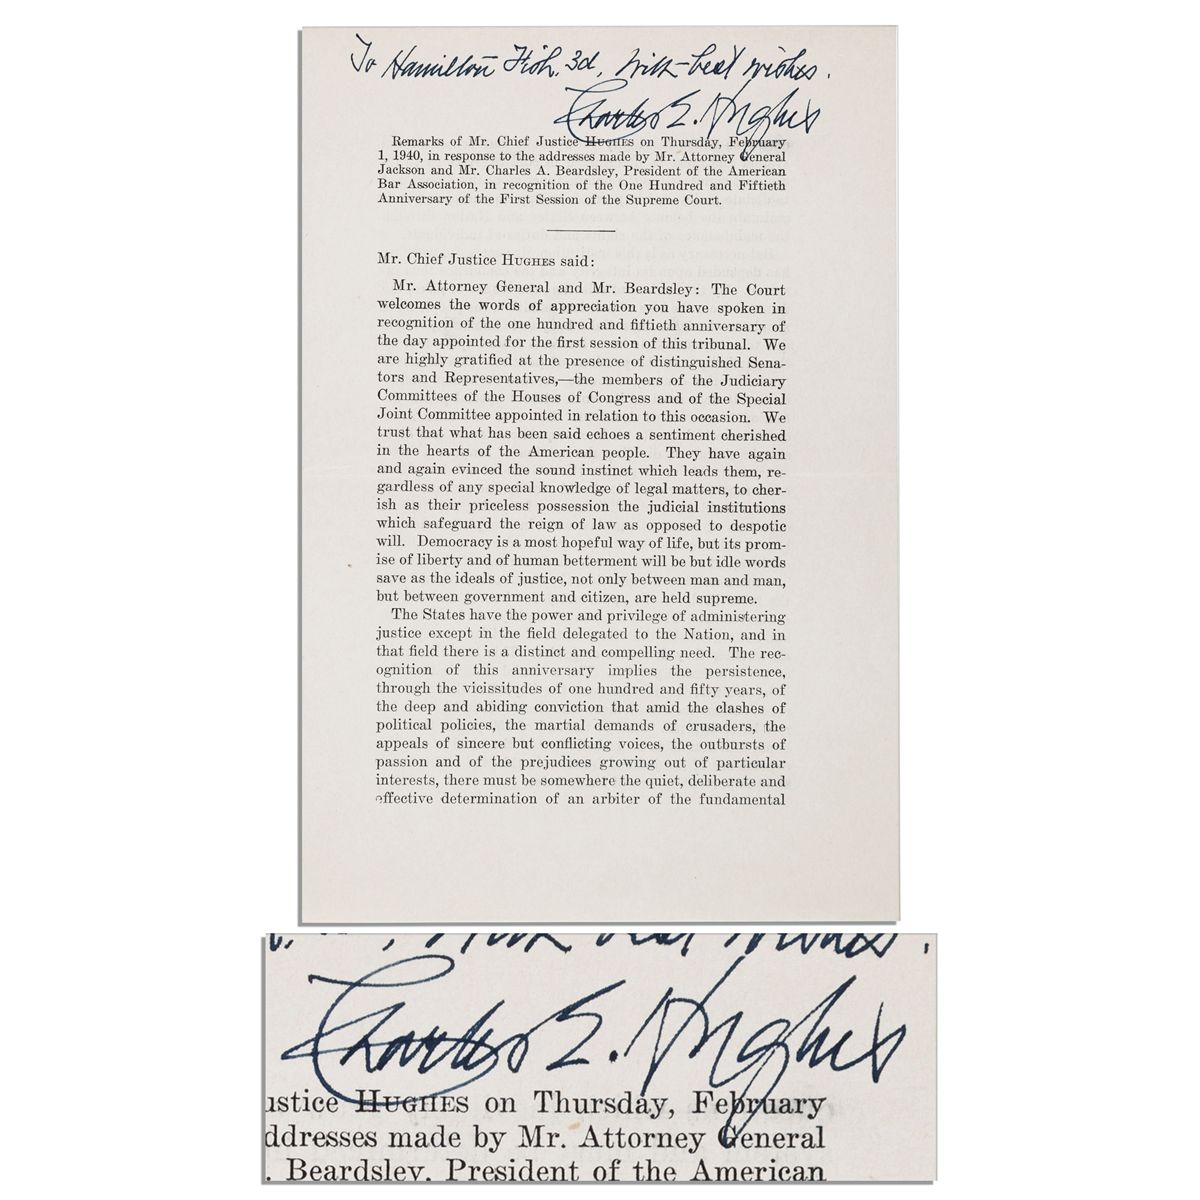 To Hamilton Fish, 3d, With best wishes.
Charles E. Hughes
Remarks of Mr. Chief Justice HUGHES on Thursday, February
1, 1940, in response to the addresses made by Mr. Attorney General
Jackson and Mr. Charles A. Beardsley, President of the American
Bar Association, in recognition of the One Hundred and Fiftieth
Anniversary of the First Session of the Supreme Court.
Mr. Chief Justice HUGHES said:
Mr. Attorney General and Mr. Beardsley: The Court
welcomes the words of appreciation you have spoken in
recognition of the one hundred and fiftieth anniversary of
the day appointed for the first session of this tribunal. We
are highly gratified at the presence of distinguished Sena-
tors and Representatives,—the members of the Judiciary
Committees of the Houses of Congress and of the Special
Joint Committee appointed in relation to this occasion. We
trust that what has been said echoes a sentiment cherished
in the hearts of the American people. They have again
and again evinced the sound instinct which leads them, re-
gardless of any special knowledge of legal matters, to cher-
ish as their priceless possession the judicial institutions
which safeguard the reign of law as opposed to despotic
will. Democracy is a most hopeful way of life, but its prom-
ise of liberty and of human betterment will be but idle words
save as the ideals of justice, not only between man and man,
but between government and citizen, are held supreme.
The States have the power and privilege of administering
justice except in the field delegated to the Nation, and in
that field there is a distinct and compelling need. The rec-
ognition of this anniversary implies the persistence,
through the vicissitudes of one hundred and fifty years, of
the deep and abiding conviction that amid the clashes of
political policies, the martial demands of crusaders, the
appeals of sincere but conflicting voices, the outbursts of
passion and of the prejudices growing out of particular
interests, there must be somewhere the quiet, deliberate and
effective determination of an arbiter of the fundamental
With best wishes.
Charles E. Hughes
ustice HUGHES on Thursday, February
ddresses made by Mr. Attorney General
. Beardsley, President of the American